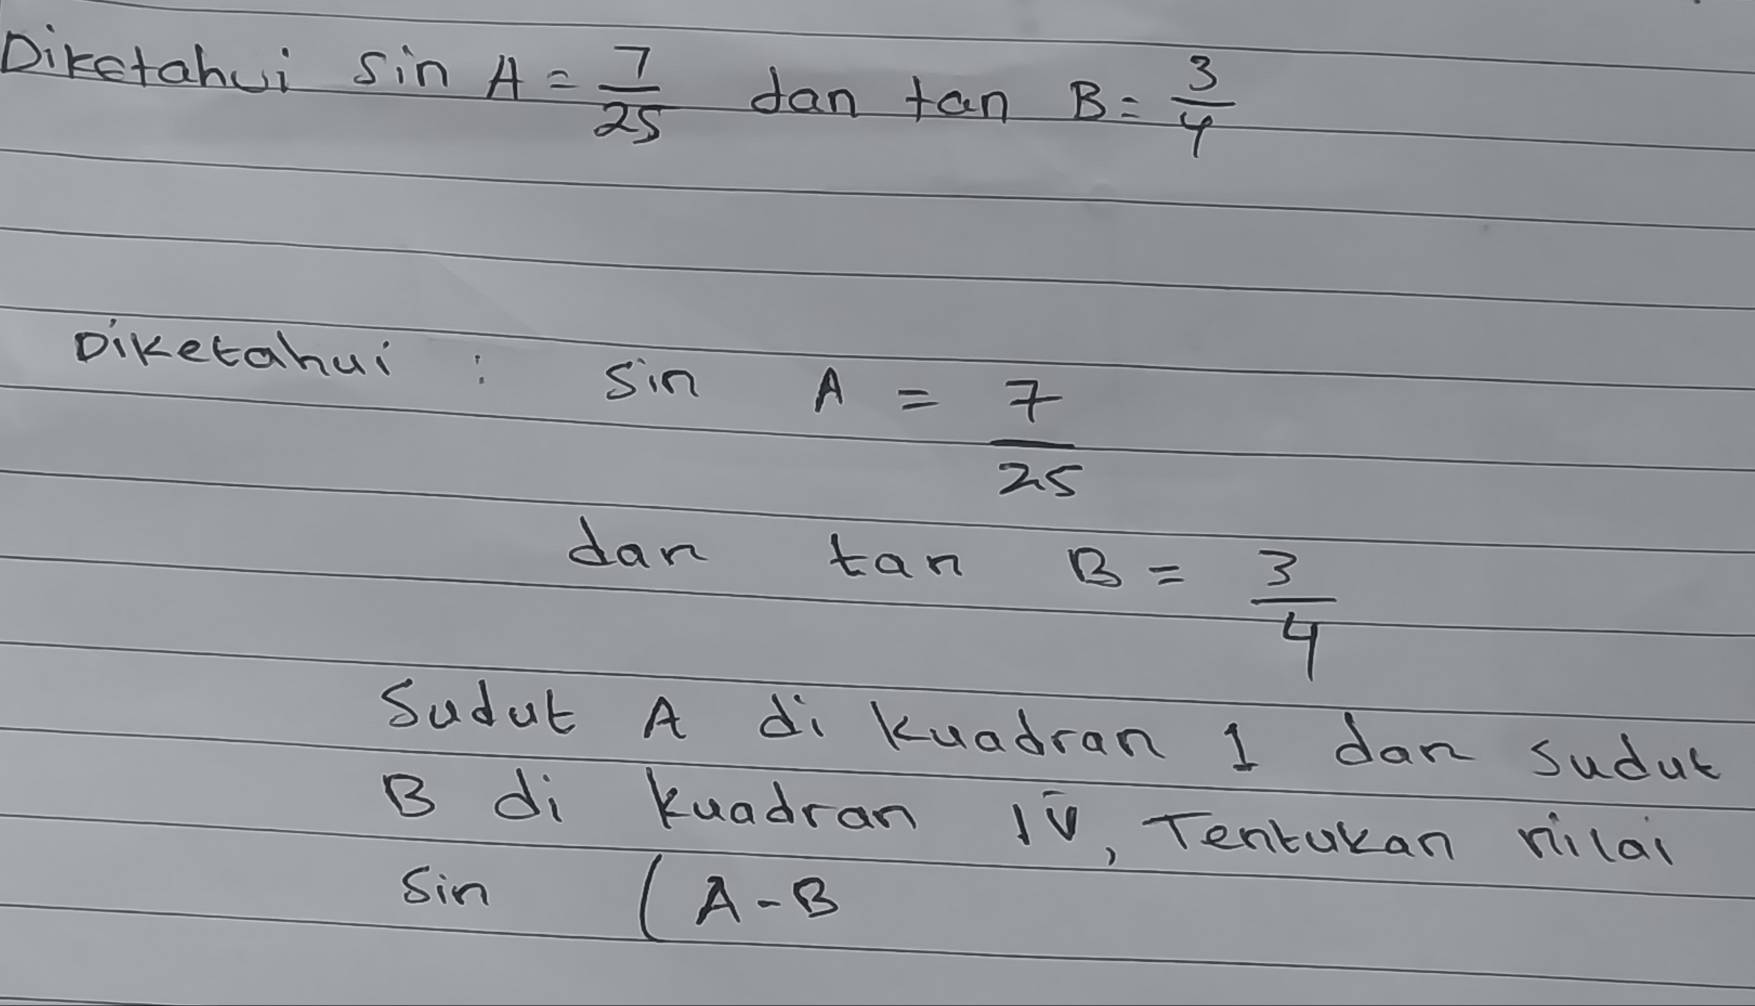 Diketahui sin A = 7/25 dan tan B = 3/4
Diketahui : sin A = 7/25
dan tan B = 3/4
Sudut A di kuadran 1 dan sudut
B di kuadran IV, Tentukan nilai
Sin (A-B